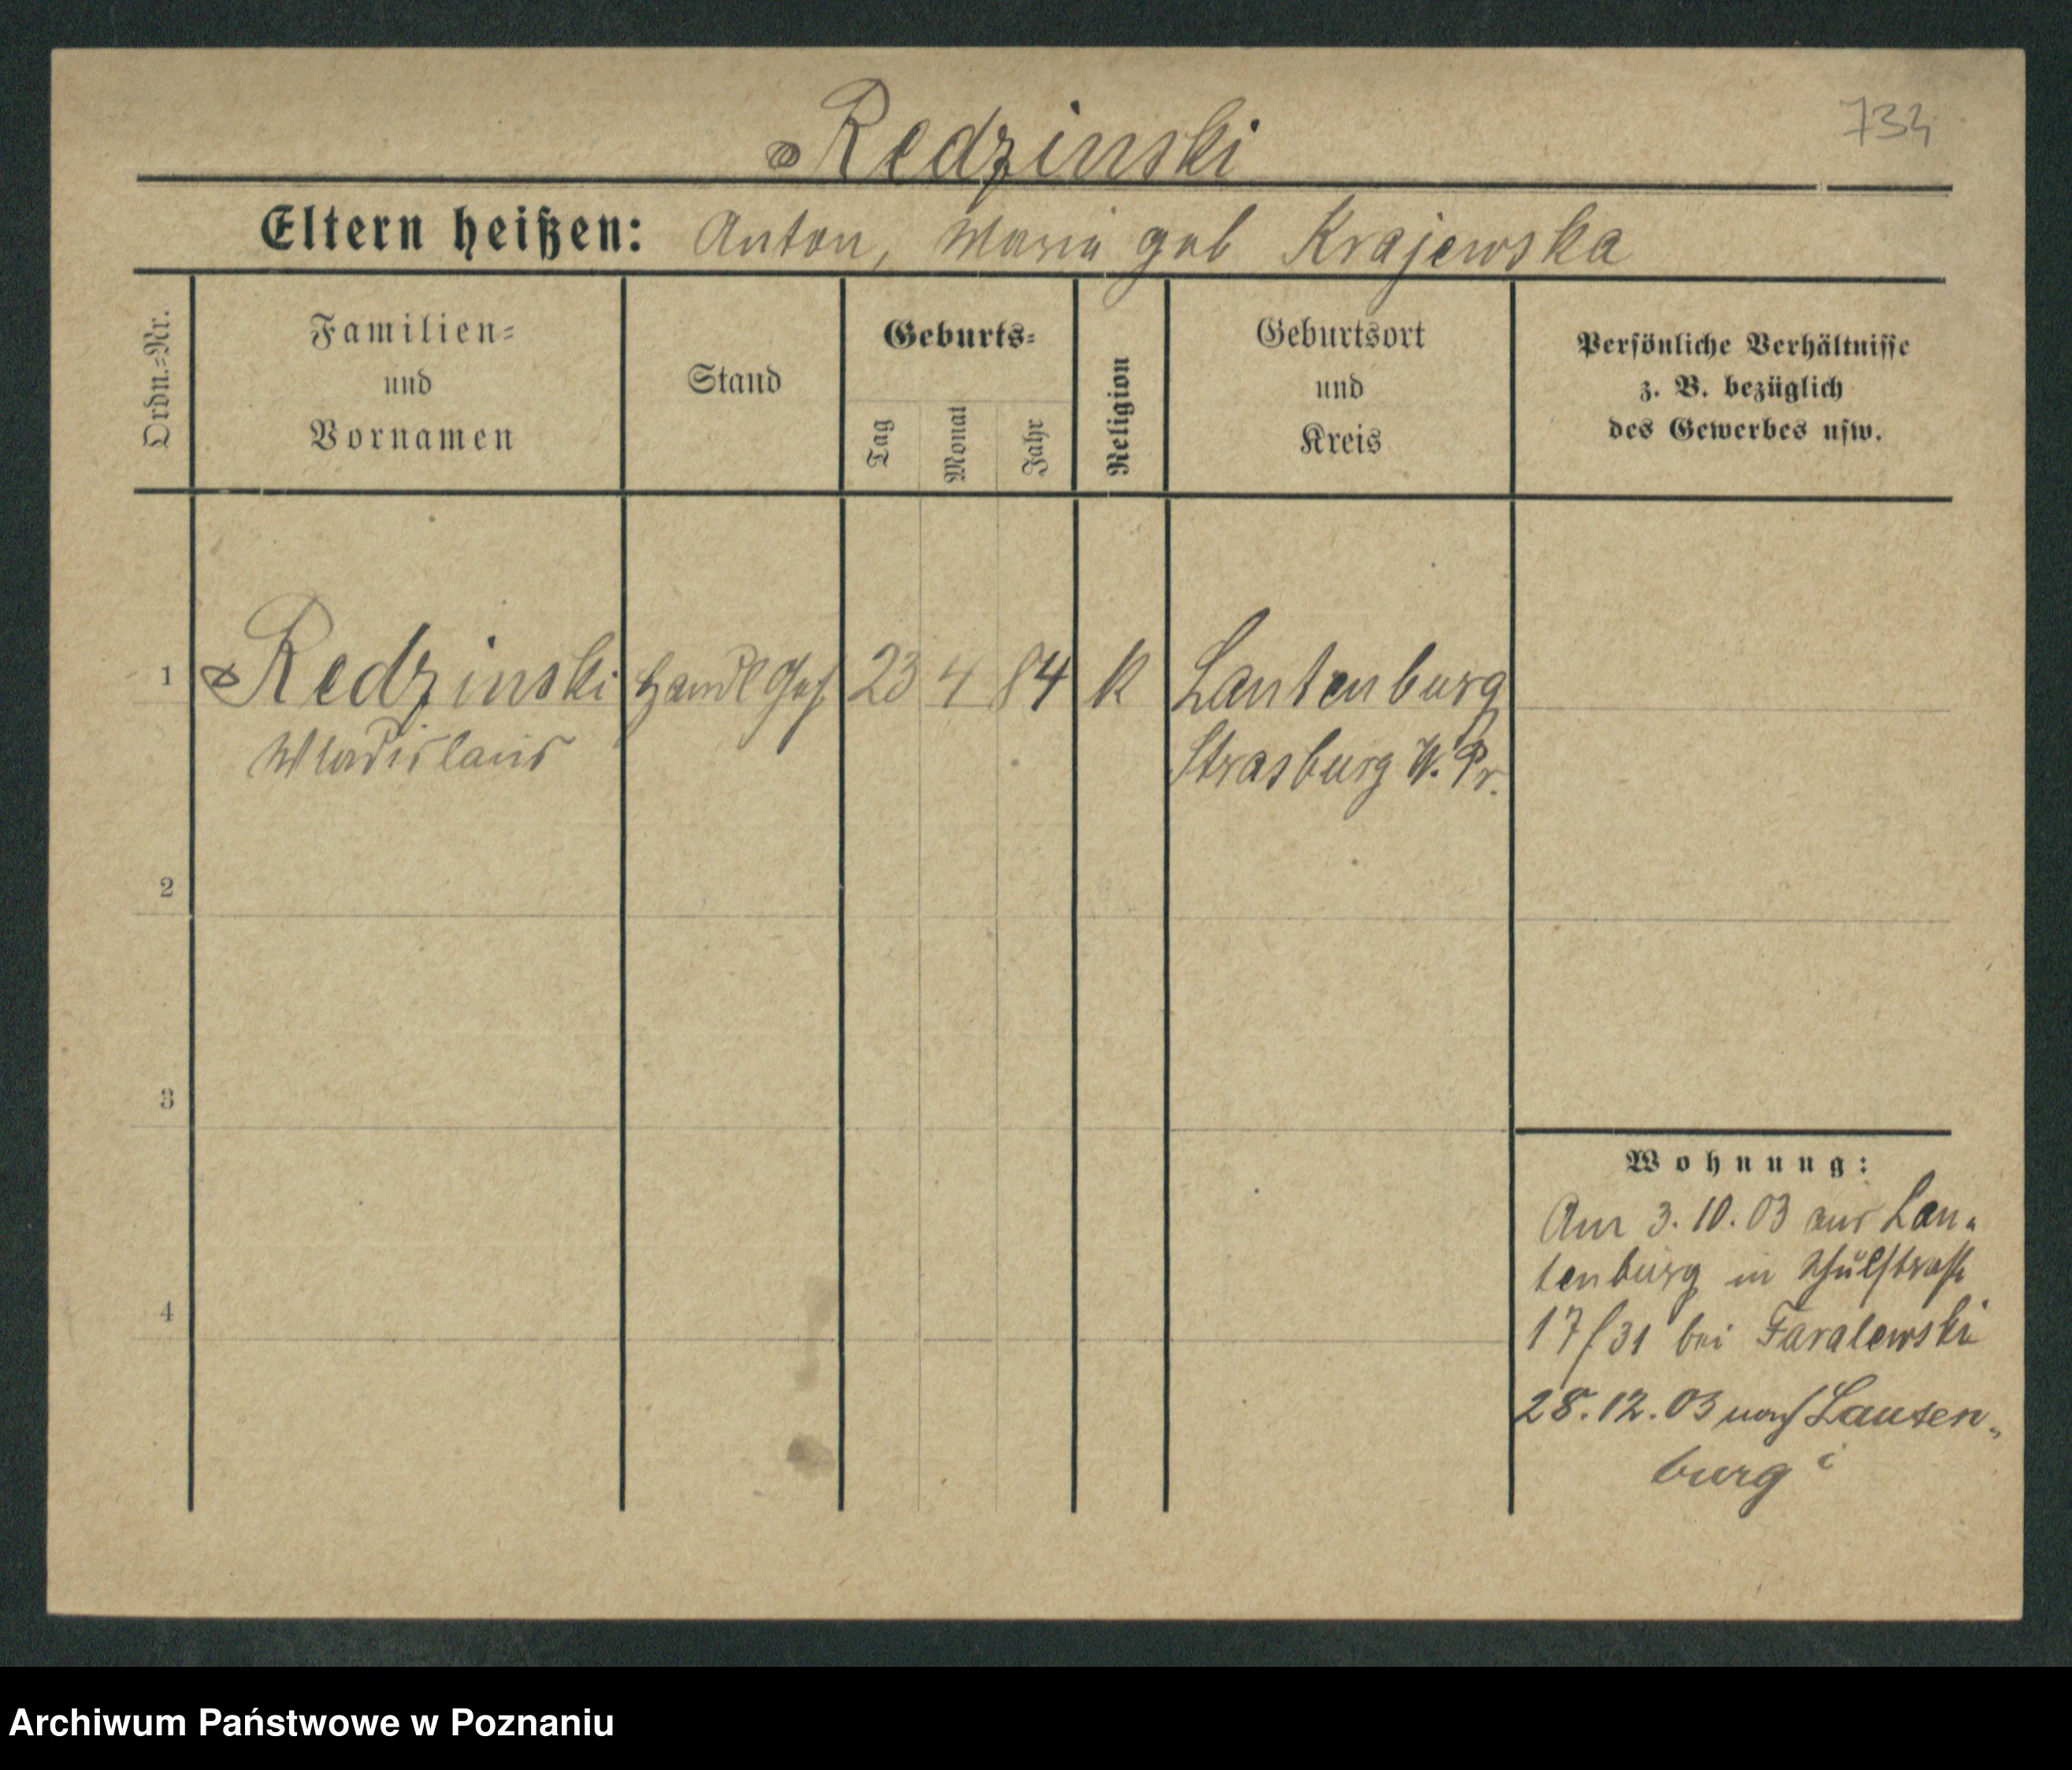 734
Redzinski
Eltern heißen: Anton, Maria geb Krajewska
Ordn.=Nr.
Familien=
und
Vornamen
Stand
Geburts=
Tag
Monat
Jahr
Religion
Geburtsort
und
Kreis
Persönliche Verhältnisse
z. B. bezüglich
des Gewerbes usw.
1 Redzinski Handl Geh 23 4 84 K Lautenburg
Wladislaus Strasburg W. Pr.
2
3
4
Wohnung:
Am 3. 10. 03 aus Lau=
tenburg in Schulstraße
17/31 bei
28. 12. 03 nach Lauten=
burg
Archiwum Państwowe w Poznaniu